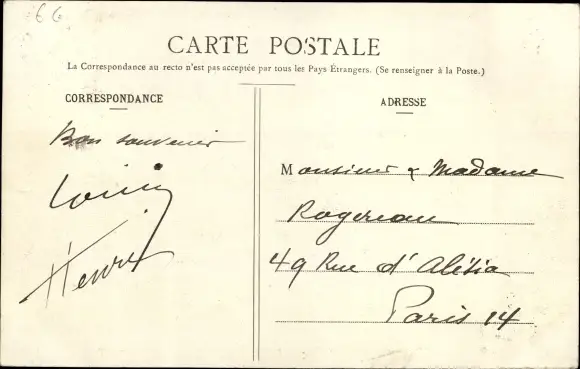 66
CARTE POSTALE
La Correspondance au recto n'est pas acceptée par tous les Pays Étrangers. (Se renseigner à la Poste.)
CORRESPONDANCE
Bon souvenir
Henri
ADRESSE
Monsieur & Madame
Rogereau
49 Rue d'Alésia
Paris 14